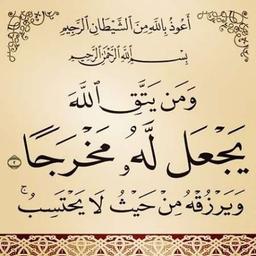 أَعُوذُ بِاللَّهِ مِنَ الشَّيْطَانِ الرَّجِيمِ
بِسْمِ اللَّهِ الرَّحْمَٰنِ الرَّحِيمِ
وَمَن يَتَّقِ ٱللَّهَ
يَجْعَل لَّهُۥ مَخْرَجًا ٢
وَيَرْزُقْهُ مِنْ حَيْثُ لَا يَحْتَسِبُ ۚ